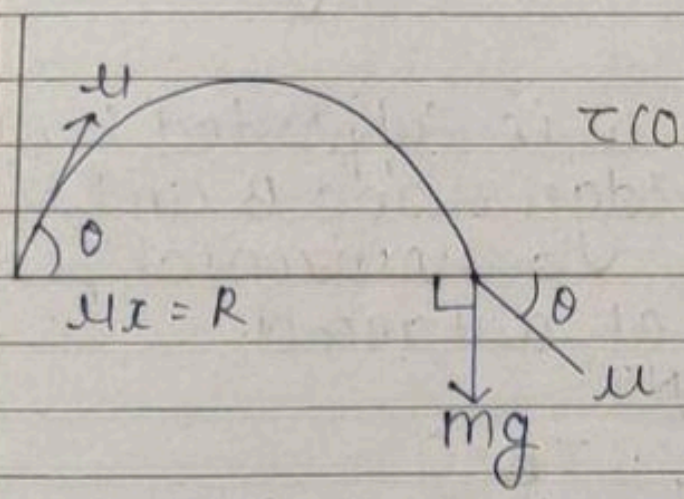 u
τ(0
θ
ux = R
θ
u
mg